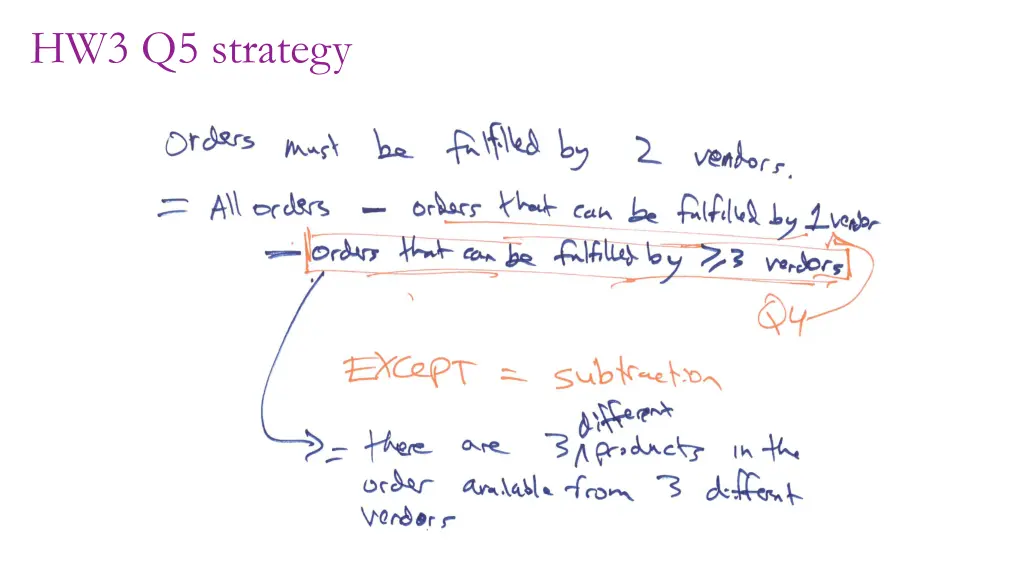 HW3 Q5 strategy
Orders must be fulfilled by 2 vendors.
= All orders - orders that can be fulfilled by 1 vendor
- orders that can be fulfilled by ≥3 vendors
Q4
EXCEPT = subtraction
different
= there are 3 ∧ products in the
order available from 3 different
vendors